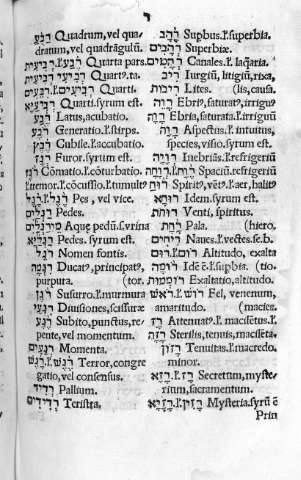 ר
רֶבַע Quadrum, vel qua
dratum, vel quadrāgulū.
רְבִיעִית Quarta pars.
רְבִיעִי רְבִיעִית Quartꝰ.ta
Quarti.syrum est.
רֶבַע Latus, acubatio.
רֶבַע Generatio.ł.stirps.
Cubile.ł.accubatio.
רֹגֶז Furor.syrum est.
Cōmatio.ł.cōturbatio.
ł.tremor.ł.cōcussio.ł.tumult
רֶגֶל Pes, vel vice.
רַגְלַיִם Pedes.
Aquę pedū.s.vrina
Pedes.syrum est.
רוֹגֵל Nomen fontis.
Ducatꝰ,principatꝰ
purpura. (tor.
Susurro.ł.murmura
Diuisiones,scissuræ
רֶגַע Subito,punctus,re-
pente,vel momentum.
רְגָעִים Momenta.
Terror,congre
gatio,vel consensus.
רְדִיד Pallium.
רְדִידִים Teristra.
רַהַב Suphus.ł.superbia.
רְהָבִים Superbiæ.
Canales.ł.laq̄aria.
רִיב Iurgiū,litigiū,rixa,
רִיבוֹת Lites. (lis,causa.
רָוֶה Ebriꝰ,saturatꝰ,irriguꝰ
רָוָה Ebria,saturata.irriguū
Aspectus.ł.intuitus,
species,visio.syrum est.
רְוָיָה Inebriās.ł.refrigeriū
Spaciū.ł.refrigeriū
רוּחַ Spiritꝰ,vētꝰ.ł.aer,halitꝰ
רוּחָא Idem.syrum est.
רוּחוֹת Venti, spiritus.
Pala. (hiero.
Naues.ł.vectes.se.b.
רוּם Altitudo, exalta
רוּמָה Idē ē.ł.supbia. (tio.
רוֹמְמוּת Exaltatio,altitudo.
רוֹשׁ.ł.רֹאשׁ Fel, venenum,
amaritudo. (macies.
רָזֶה Attenuatꝰ.ł. macilētus.ł.
רָזָה Sterilis, tenuis,macilēta
רָזוֹן Tenuitas.ł.macredo.
minor.
Secretum,myste-
rium,sacramentum.
Mysteria.syrū ē
Prin